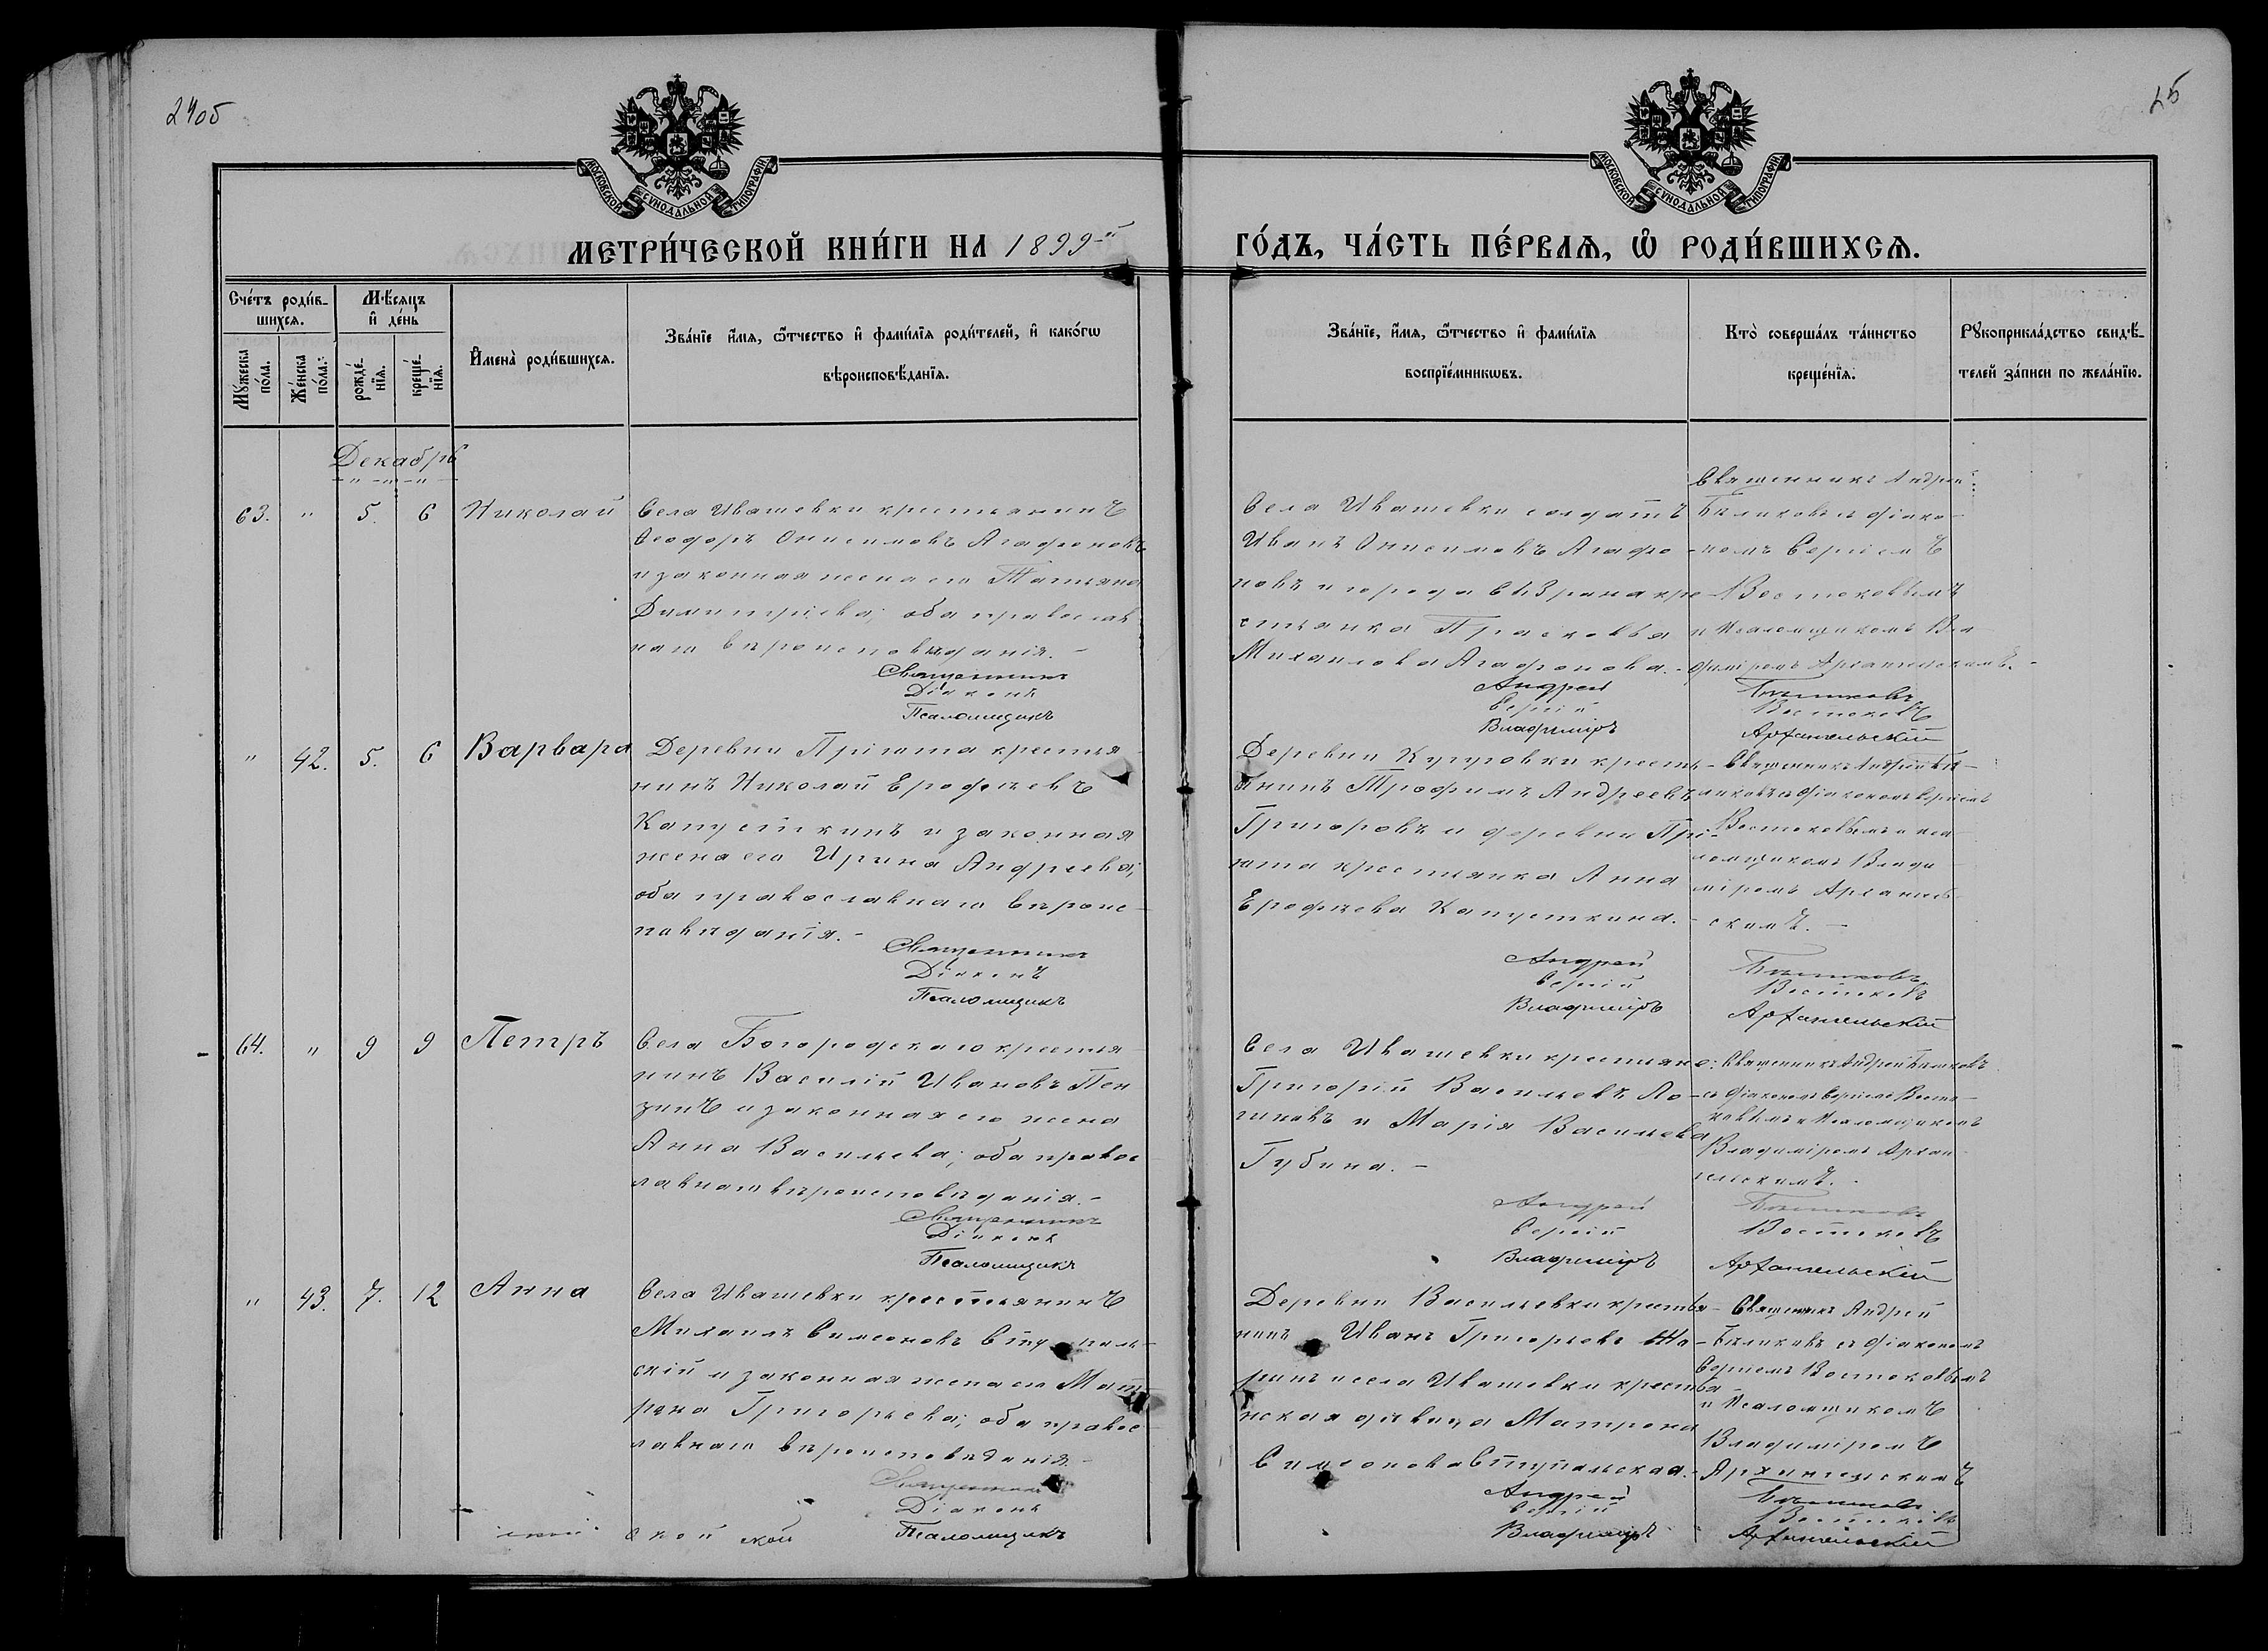 24об
25
МОСКОВСКОЙ СѴНОДАЛЬНОЙ ТИПОГРАФІИ
МОСКОВСКОЙ СѴНОДАЛЬНОЙ ТИПОГРАФІИ
МЕТРИ́ЧЕСКОЙ КНИ́ГИ НА 1899-й
ГО́ДЪ, ЧА́СТЬ ПЕ́РВАѦ, Ѽ РОДИ́ВШИХСѦ.
Сче́тъ роди́в-
шихсѧ.
Мꙋ́жеска
по́ла.
Же́нска
по́ла.
Мѣ́сѧцъ
и҆ де́нь
рожде́-
нїѧ.
креще́-
нїѧ.
И҆мена̀ роди́вшихсѧ.
Зва́нїе и҆́мѧ, ѻ҆́тчество и҆ фами́лїѧ роди́телей, и҆ како́гѡ
вѣроисповѣ́данїѧ.
Зва́нїе, и҆́мѧ, ѻ҆́тчество и҆ фами́лїѧ
воспрїе́мникѡвъ.
Кто̀ соверша́лъ та́инство
креще́нїѧ.
Рꙋкоприкла́дство свидѣ́-
телей за́писи по жела́нїю.
Декабрь
63. " 5. 6 Николай
Села Ивашевки крестьянинъ
Ѳеодоръ Онисимовъ Агафоновъ
и законная жена его Татьяна
Димитріева; оба православ
наго вѣроисповѣданія. -
Священникъ
Діаконъ
Псаломщикъ
Села Ивашевки солдатъ
Иванъ Онисимовъ Агафо-
новъ и города Сызрана кре-
стьянка Прасковья
Михаилова Агафонова. -
Андрей
Сергій
Владиміръ
Священникъ Андрей
Бѣликовъ съ діако-
номъ Сергіемъ
Востоковымъ
и Псаломщикомъ Вла
диміромъ Архангельскимъ. -
Бѣликовъ
Востоковъ
Архангельскій
" 42. 5. 6 Варвара
Деревни Пріюта крестья
нинъ Николай Ерофѣевъ
Капусткинъ и законная
жена его Ирина Андреева;
оба православнаго вѣроис-
повѣданія. -
Священникъ
Діаконъ
Псаломщикъ
Деревни Кугуровки кресть-
янинъ Трофимъ Андреевъ
Григоровъ и деревни Прі-
юта крестьянка Анна
Ерофѣева Капусткина. -
Андрей
Сергій
Владиміръ
Священникъ Андрей Бѣ-
ликовъ съ діакономъ Сергіемъ
Востоковымъ и пса-
ломщикомъ Влади
міромъ Архангель-
скимъ. -
Бѣликовъ
Востоковъ
Архангельскій
64. " 9 9 Петръ
Села Богородскаго крестья
нинъ Василій Ивановъ Пен
зинъ и законная его жена
Анна Васильева; оба правос
лавнаго вѣроисповѣданія. -
Священникъ
Діаконъ
Псаломщикъ
Села Ивашевки крестьяне:
Григорій Васильевъ Ло-
гиновъ и Марія Васильева
Губина. -
Андрей
Сергій
Владиміръ
Священникъ Андрей Бѣликовъ
съ діакономъ Сергіемъ Восто-
ковымъ и Псаломщикомъ
Владиміромъ Архан
гельскимъ. -
Бѣликовъ
Востоковъ
Архангельскій
" 43. 7. 12 Анна
Села Ивашевки крестьянинъ
Михаилъ Симеоновъ Ступаль-
скій и законная жена его Мат
рона Григорьева; оба правос
лавнаго вѣроисповѣданія. -
Священникъ
Діаконъ
Псаломщикъ
Деревни Васильевки крестья-
нинъ Иванъ Григорьевъ
и села Ивашевки крестья-
нская дѣвица Матрона
Симеонова Ступальская. -
Андрей
Сергій
Владиміръ
Священникъ Андрей
Бѣликовъ съ діакономъ
Сергіемъ Востоковымъ
и Псаломщикомъ
Владиміромъ
Архангельскимъ
Бѣликовъ
Востоковъ
Архангельскій
ской ской